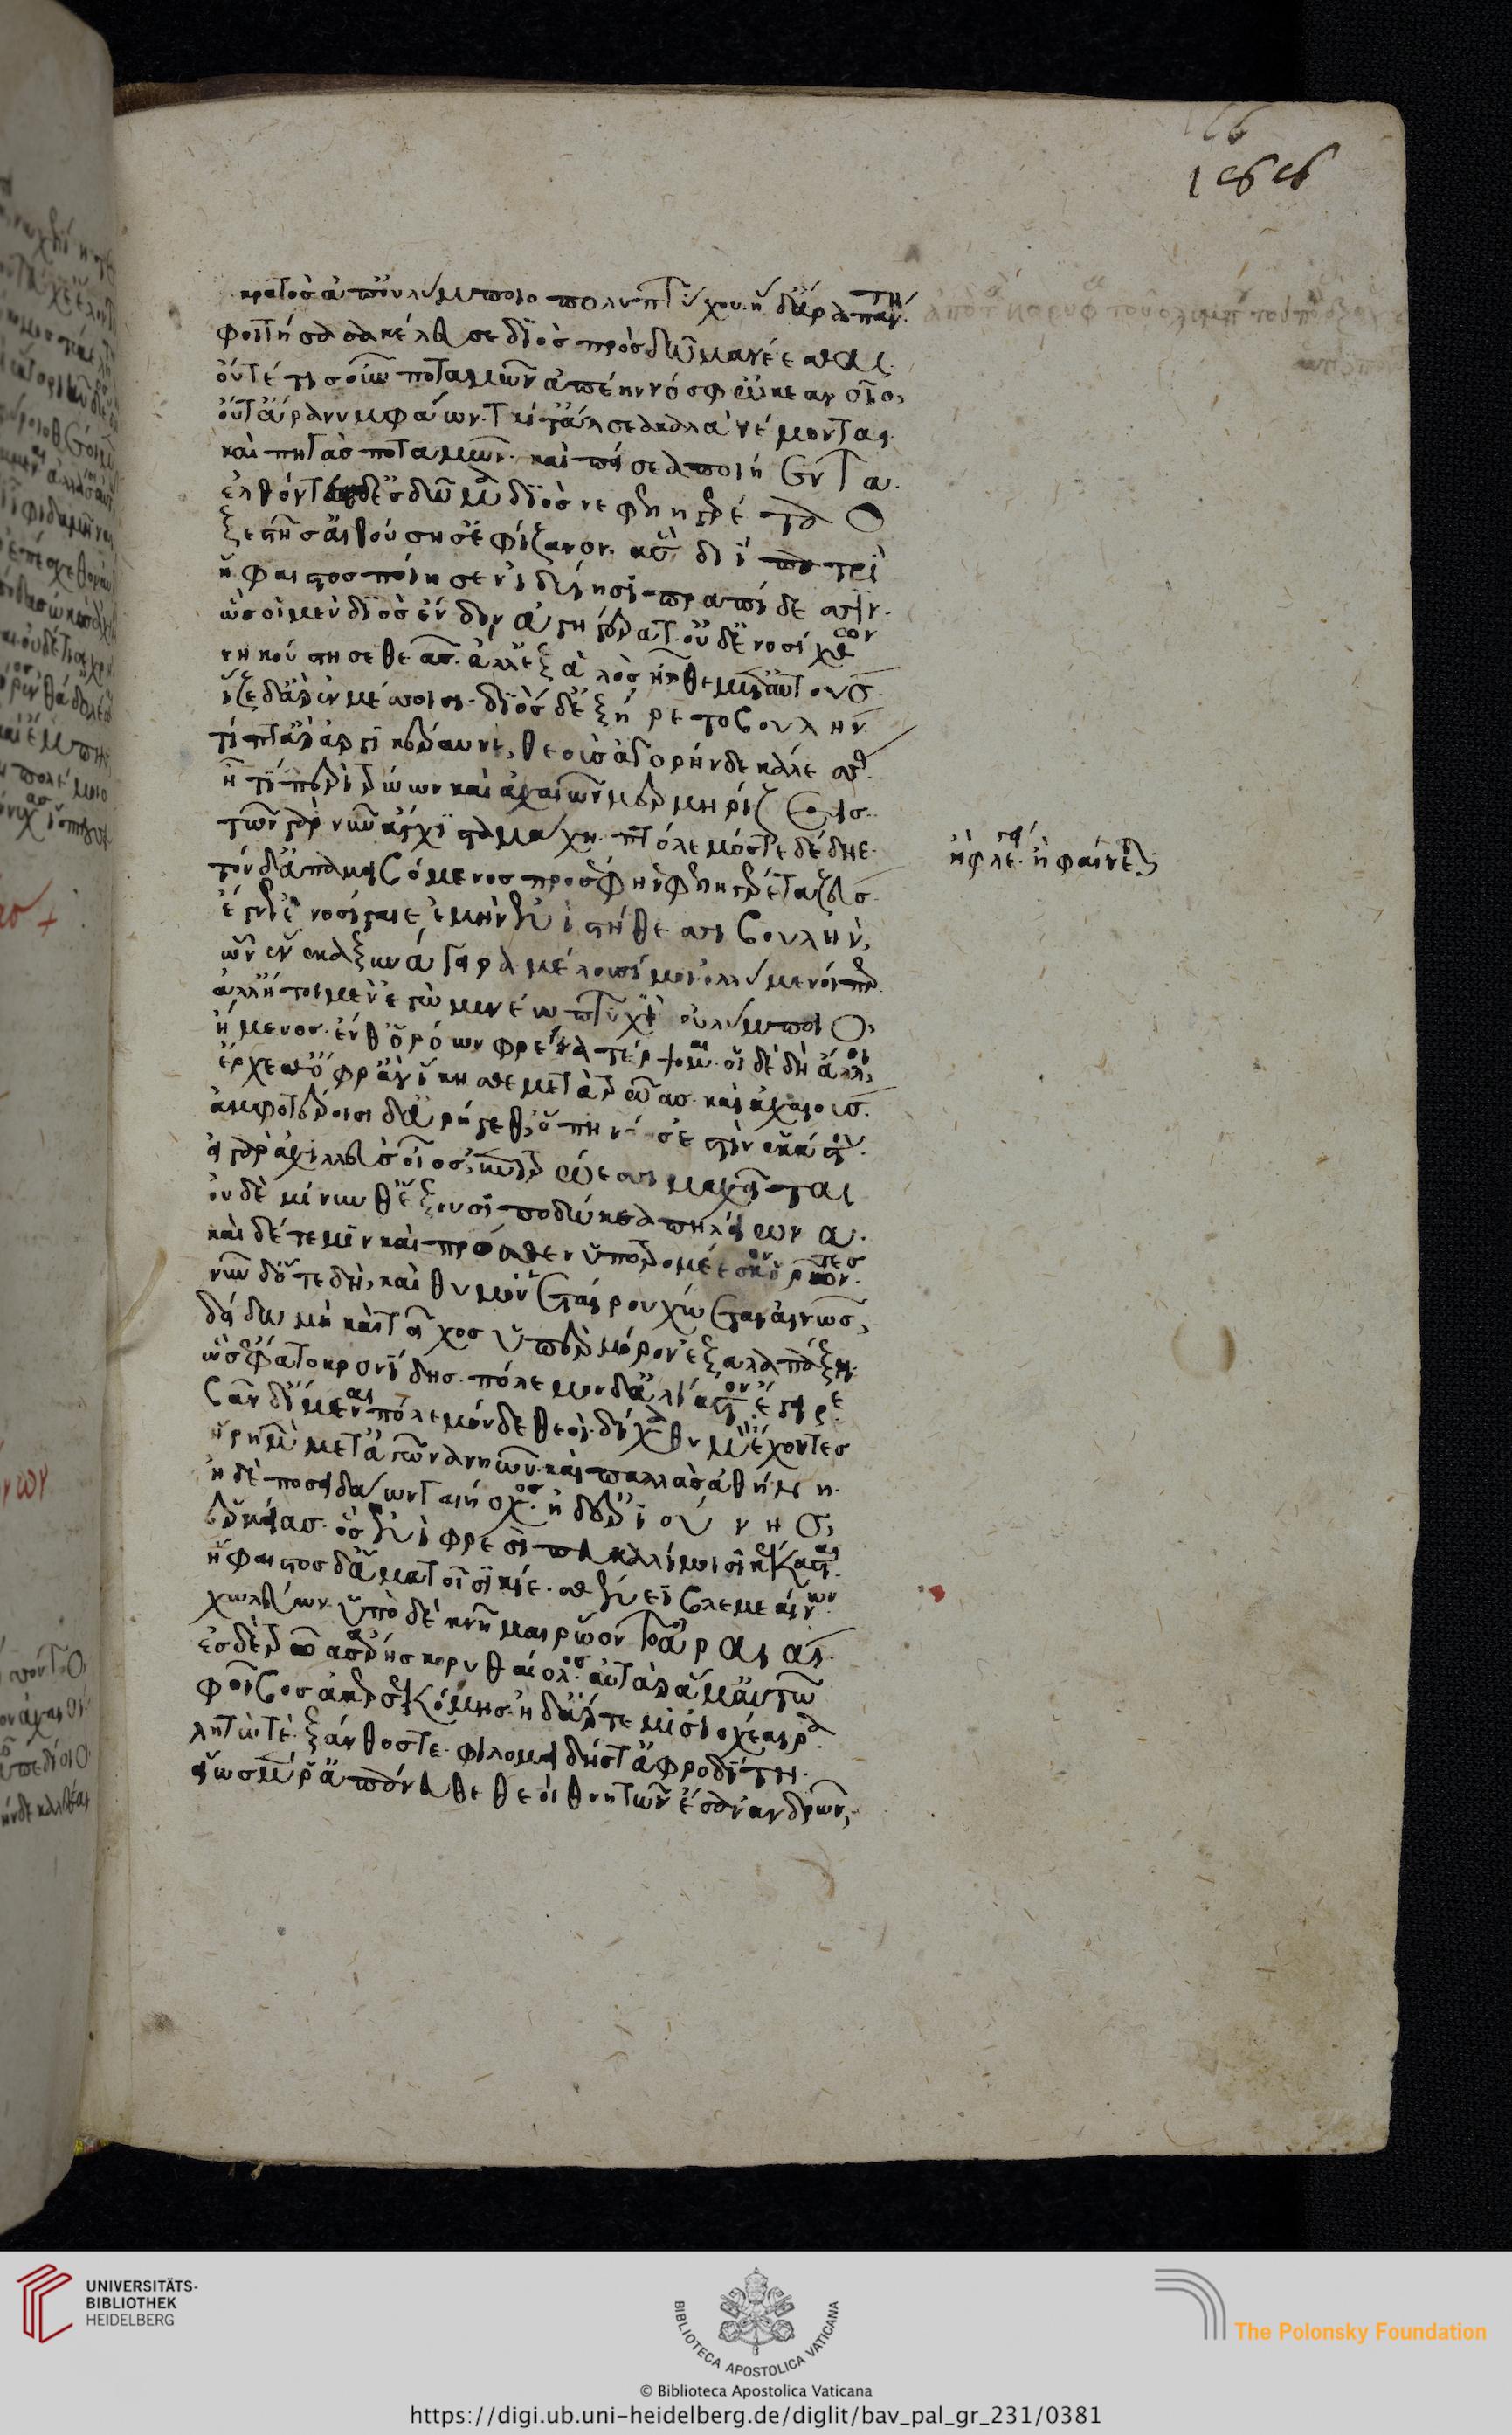 κρατὸς ἀπ' οὐλύμποιο πολυπτύχου· ἡ δ' ἄρα πάντη.
φοιτήσασα κέλευσε διὸς πρὸς δῶμα νέεσθαι.
οὔτέ τις οὖν ποταμῶν ἀπέην νόσφ' ὠκεανοῖο,
οὔτ' ἄρα νυμφάων. ταί τ' ἄλσεα καλὰ νέμονται.
καὶ πηγὰς ποταμῶν. καὶ πίσεα ποιήεντα.
ἐλθόντες δ' ἐς δῶμα διὸς νεφεληγερέταο
ξεστῇς αἰθούσησ' ἐφίζανον. ἃς διῒ πατρὶ
ἥφαιστος ποίησεν ἰδυίησι πραπίδεσσιν.
ὣς οἱ μὲν διὸς ἔνδον ἀγηγέρατ'. οὐδ' ἐνοσίχθων
νηκούστησε θεᾶς. ἀλλ' ἐξ ἁλὸς ἦλθε μετ' αὐτούς.
ἷζε δ' ἄρ' ἐν μέσσοισι. διὸς δ' ἐξήρετο βουλήν
τίπτ' αὖτ' ἀργικέραυνε, θεοὺς ἀγορήνδε κάλεσσας.
ἦ τὶ περὶ τρώων καὶ ἀχαιῶν μερμηρίζεις.
τῶν γὰρ νῦν ἄγχιστα μάχη. πτόλεμός τε δέδηε.
τὸν δ' ἀπαμειβόμενος προσέφη νεφεληγερέτα ζεύς.
ἔγνως ἐνοσίγαιε, ἐμὴν ἐνὶ στήθεσι βουλήν,
ὧν ἕνεκα ξυνάγειρα. μέλουσί μοι ὀλλύμενοί περ
ἀλλ' ἤτοι μὲν ἐγὼ μενέω πτυχὶ οὐλύμποιο,
ἥμενος. ἔνθ' ὁρόων φρένα τέρψομαι. οἱ δὲ δὴ ἄλλοι,
ἔρχεσθ' ὄφρ' ἂν ἵκησθε μετὰ τρῶας καὶ ἀχαιούς.
ἀμφοτέροισι δ' ἀρήγεθ', ὅπη νόος ἐστὶν ἑκάστου.
εἰ γὰρ ἀχιλλεὺς οἶος, ἐπὶ τρώεσσι μαχεῖται
οὐδὲ μίνυνθ' ἕξουσι ποδώκεα πηλείωνα.
καὶ δέ τε μὶν καὶ πρόσθεν ὑποτρομέεσκον ὁρῶντες
νῦν δ' ὅτε δὴ, καὶ θυμὸν ἑταίρου χώεται αἰνῶς,
δείδω μὴ καὶ τεῖχος ὑπὲρ μόρον ἐξαλαπάξη.
ὣς ἔφατο κρονίδης. πόλεμον δ' ἀλίαστον ἔγειρε
βὰν δ' ἴμεναι πόλεμόνδε θεοὶ. δίχα θυμὸν ἔχοντες
ἥρη μὲν μετ' ἀγῶνα νηῶν. καὶ παλλὰς ἀθήνη.
ἠδὲ ποσειδάων γαιήοχος. ἠδ' ἐριούνης,
ἑρμείας. ὃς ἐνὶ φρεσὶ πευκαλίμησι κέκασται.
ἥφαιστος δ' ἅμα τοῖσι κίε. σθένεϊ βλεμεαίνων.
χωλεύων. ὑπὸ δὲ κνῆμαι ῥώοντο ἀραιαί.
ἐς δὲ τρῶας ἄρης κορυθαίολος. αὐτὰρ ἅμ' αὐτῶ
φοῖβος ἀκερσεκόμης. ἠδ' ἄρτεμις ἰοχέαιρα.
λητώ τε. ξάνθος τε. φιλομειδής τ' ἀφροδίτη.
εἵως μέν ῥ' ἀπάνευθε θεοὶ θνητῶν ἔσαν ἀνδρῶν,